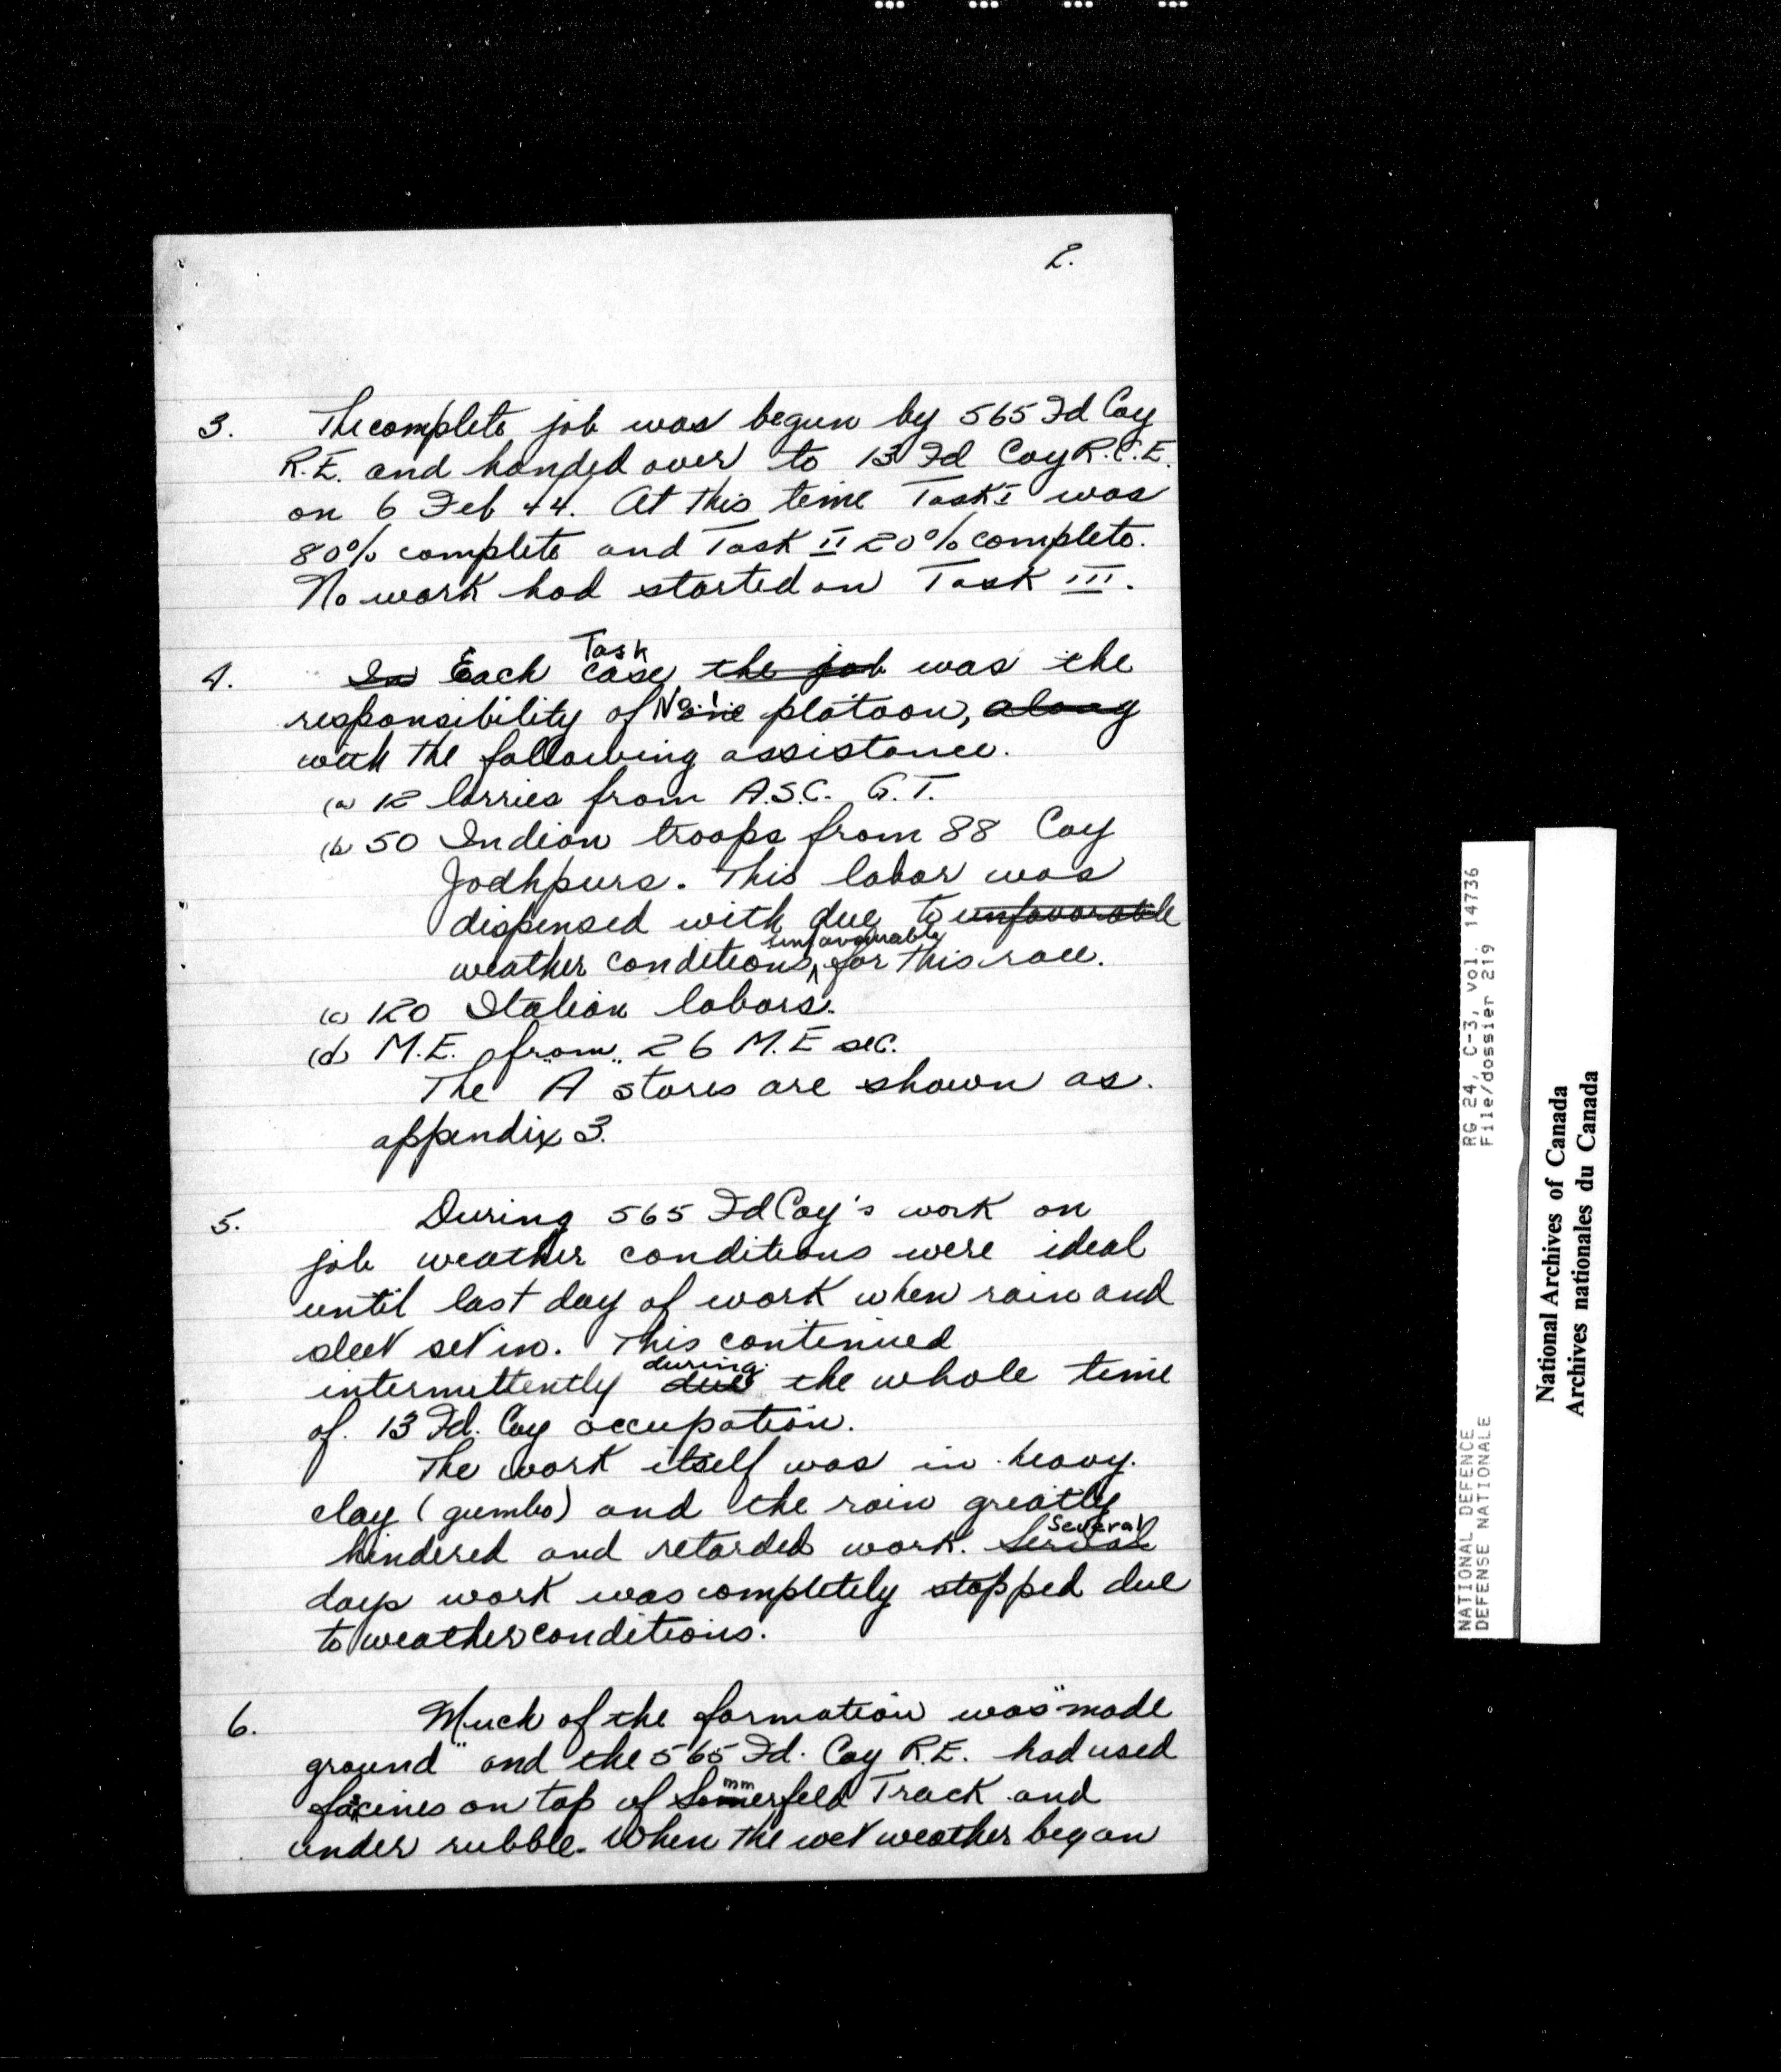 2.
3. The complete job was begun by 565 Fd Coy
R.E. and handed over to 13 Fd Coy R.C.E.
on 6 Feb 44. At this time Task I was
80% complete and Task II 20% complete.
No work had started on Task III.
Task
4. In Each case the job was the
responsibility of No. 1 platoon, along
with the following assistance.
(a) 12 lorries from A.S.C. G.T.
(b) 50 Indian troops from 88 Coy
Jodhpurs. This labor was
dispensed with due to unfavorable
unfavourable
weather conditions for this race.
(c) 120 Italian labors.
(d) M.E. from 26 M.E sec.
The "A" stores are shown as
appendix 3.
5. During 565 Fd Coy's work on
job weather conditions were ideal
until last day of work when rain and
sleet set in. This continued
during
intermittently due the whole time
of 13 Fd. Coy occupation.
The work itself was in heavy
clay (gumbo) and the rain greatly
Several
hindered and retarded work.
days work was completely stopped due
to weather conditions.
6. Much of the formation was "made
ground" and the 565 Fd. Coy R.E. had used
facines on top of Sommerfeld Track and
under rubble. When the wet weather began
RG 24, C-3, vol. 14736
File/dossier 219
NATIONAL DEFENCE
DEFENSE NATIONALE
National Archives of Canada
Archives nationales du Canada